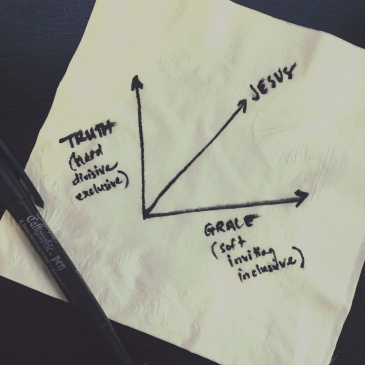 JESUS
TRUTH
(hard
divisive
exclusive)
GRACE
(soft
inviting
inclusive)
Calligraphic pen